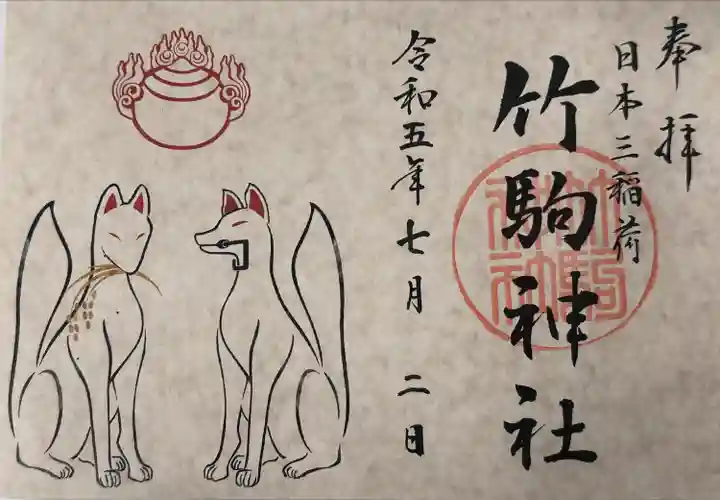 奉拝
日本三稲荷
竹駒神社
竹駒神社
令和五年七月 二日